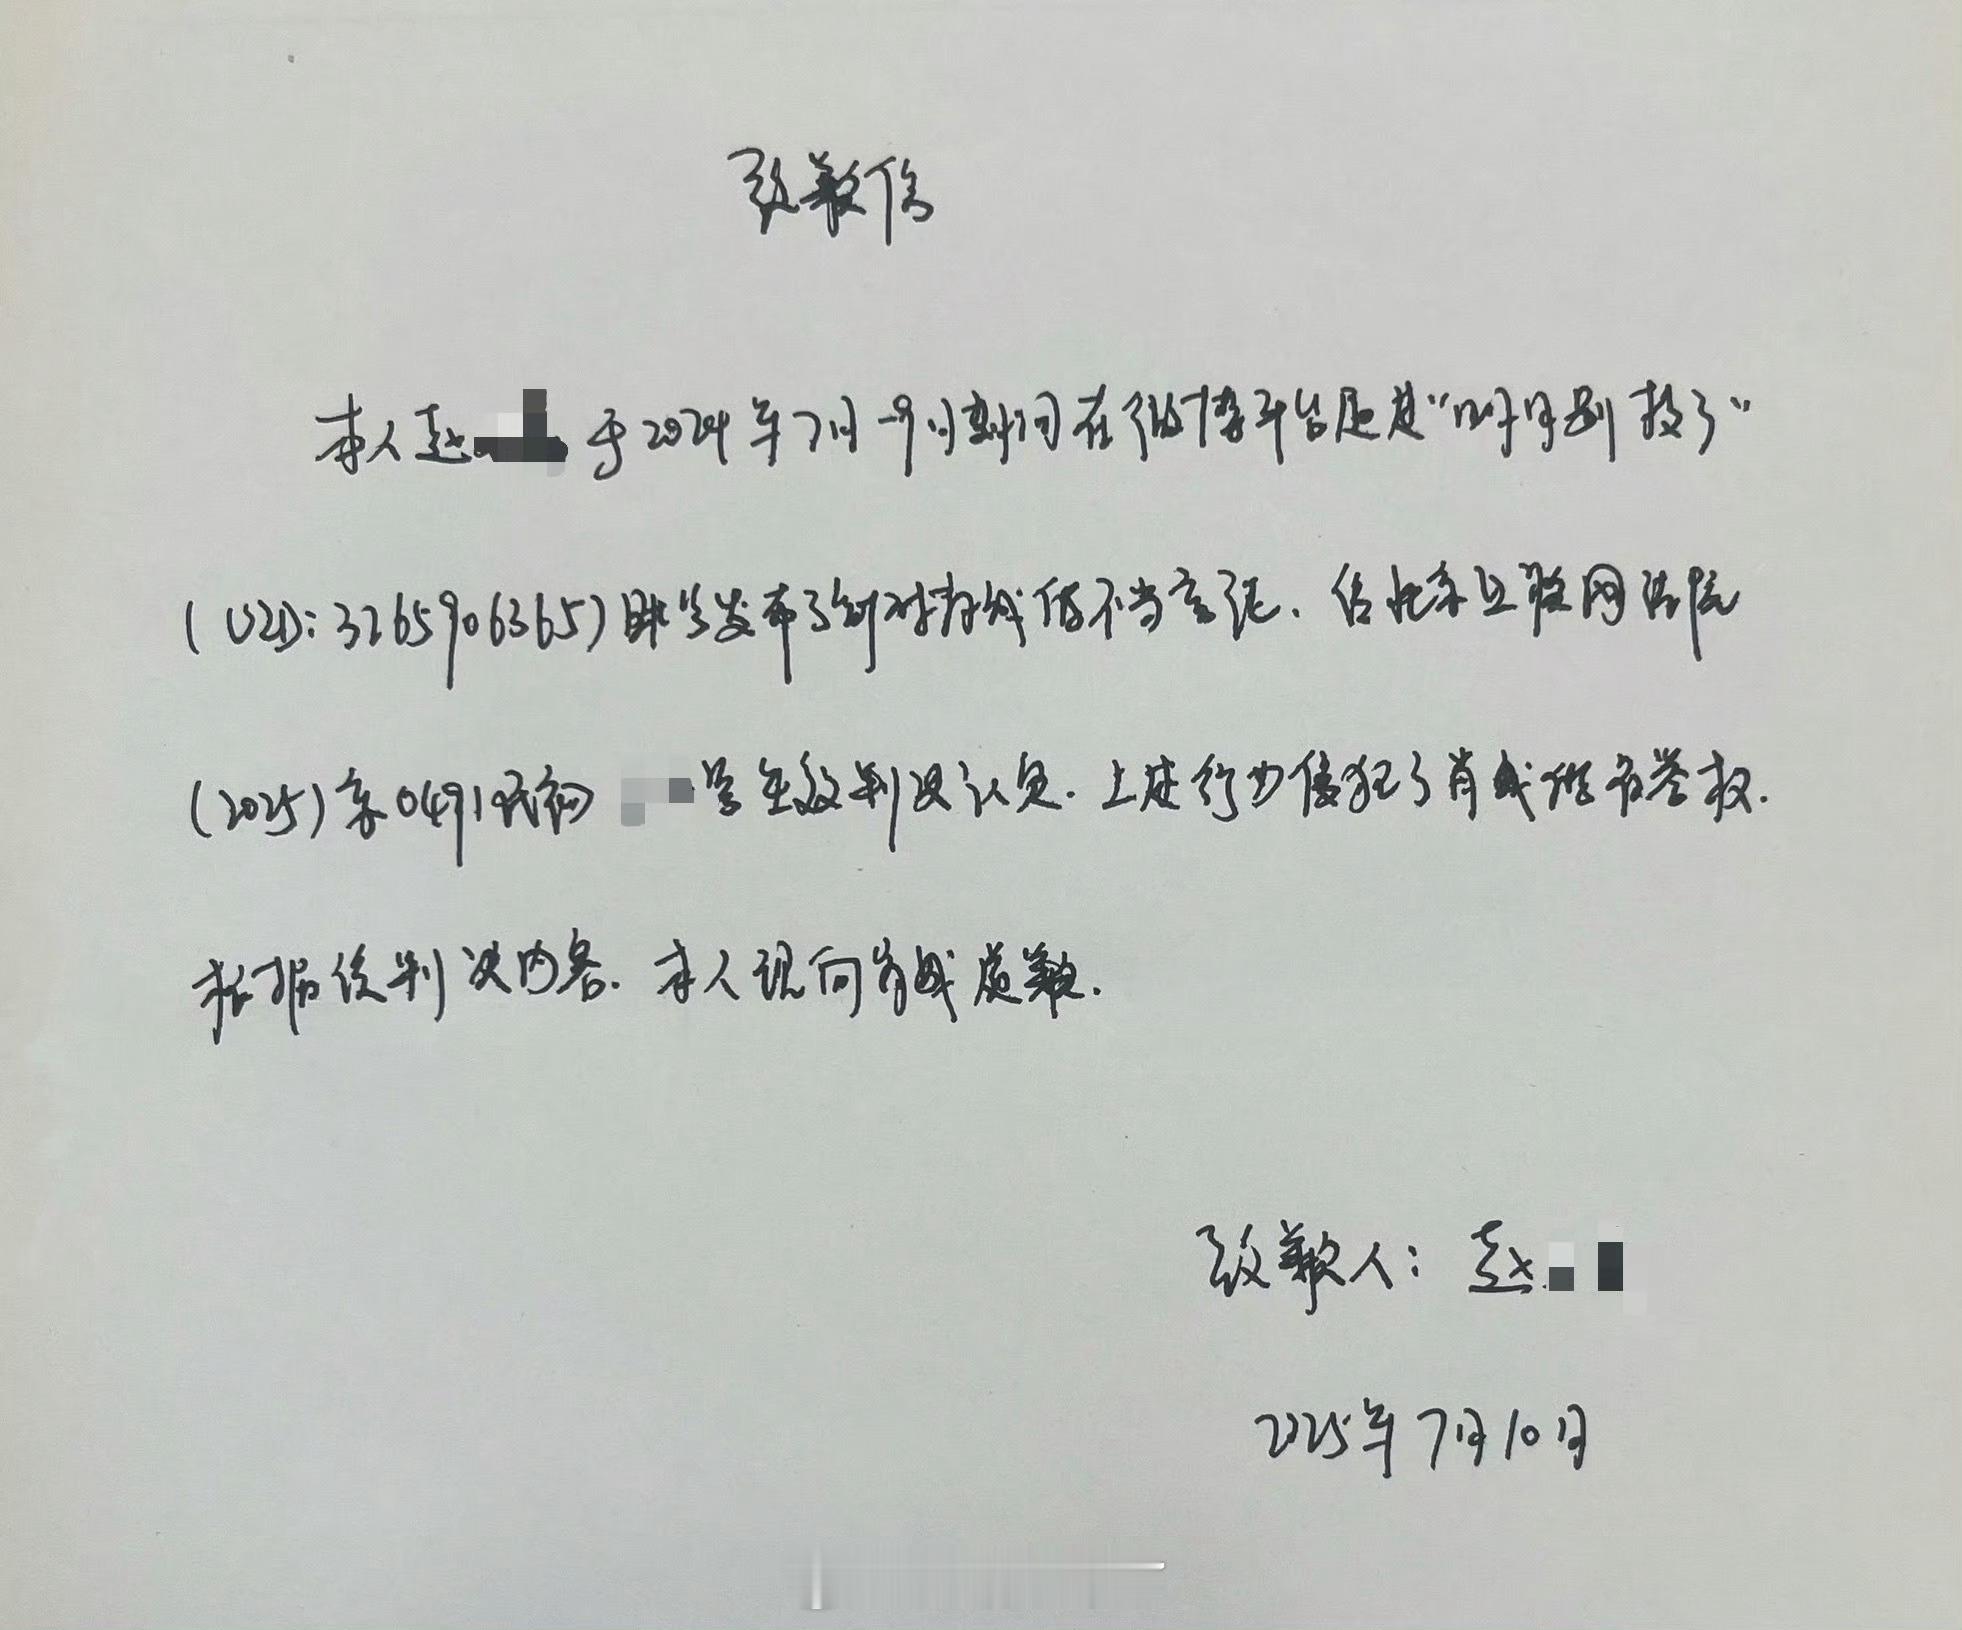 致歉信
本人赵 于2024年7月-9月期间在微博平台通过"明月别枝了"
(UID:3265906365)账号发布了针对肖战的不当言论.经北京互联网法院
(2025)京0491民初 号生效判决认定.上述行为侵犯了肖战的名誉权.
根据该判决内容.本人现向肖战道歉.
致歉人:赵
2025年7月10日